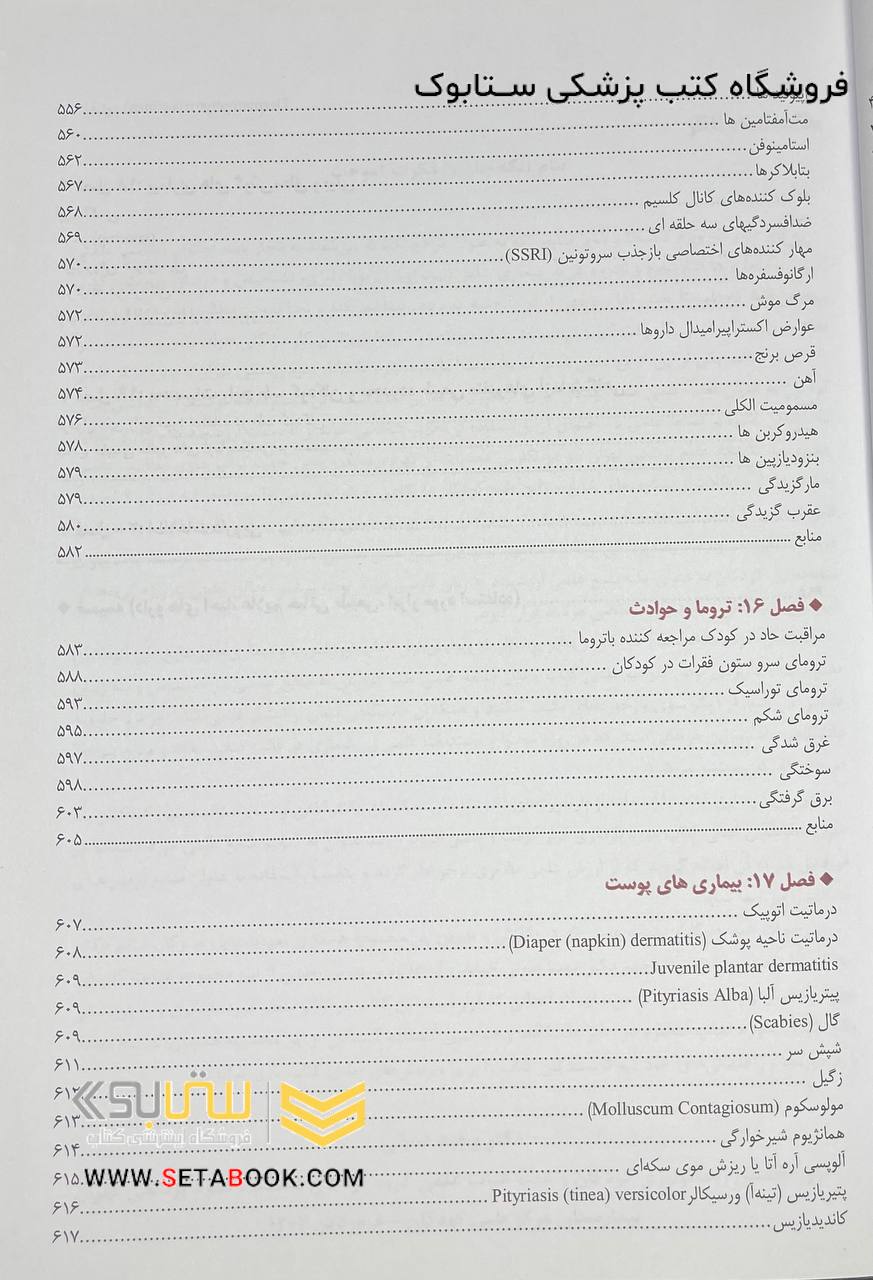 فروشگاه کتب پزشکی ستابوک
۵۵۶
مت‌آمفتامین ها ۵۶۰
استامینوفن ۵۶۲
بتابلاکرها ۵۶۷
بلوک کننده‌های کانال کلسیم ۵۶۸
ضدافسردگیهای سه حلقه ای ۵۶۹
مهار کننده‌های اختصاصی بازجذب سروتونین (SSRI) ۵۷۰
ارگانوفسفره‌ها ۵۷۰
مرگ موش ۵۷۲
عوارض اکستراپیرامیدال داروها ۵۷۲
قرص برنج ۵۷۳
آهن ۵۷۴
مسمومیت الکلی ۵۷۶
هیدروکربن ها ۵۷۸
بنزودیازپین ها ۵۷۹
مارگزیدگی ۵۷۹
عقرب گزیدگی ۵۸۰
منابع ۵۸۲
◆ فصل ۱۶: تروما و حوادث
مراقبت حاد در کودک مراجعه کننده باتروما ۵۸۳
ترومای سرو ستون فقرات در کودکان ۵۸۸
ترومای توراسیک ۵۹۳
ترومای شکم ۵۹۵
غرق شدگی ۵۹۷
سوختگی ۵۹۸
برق گرفتگی ۶۰۳
منابع ۶۰۵
◆ فصل ۱۷: بیماری های پوست
درماتیت اتوپیک ۶۰۷
درماتیت ناحیه پوشک (Diaper (napkin) dermatitis) ۶۰۸
Juvenile plantar dermatitis ۶۰۹
پیتریازیس آلبا (Pityriasis Alba) ۶۰۹
گال (Scabies) ۶۰۹
شپش سر ۶۱۱
زگیل ۶۱۲
مولوسکوم (Molluscum Contagiosum) ۶۱۳
همانژیوم شیرخوارگی ۶۱۴
آلوپسی آره آتا یا ریزش موی سکه‌ای ۶۱۵
پتیریازیس (تینه‌آ) ورسیکالر Pityriasis (tinea) versicolor ۶۱۶
کاندیدیازیس ۶۱۷
ستابوک
فروشگاه اینترنتی کتاب
WWW.SETABOOK.COM